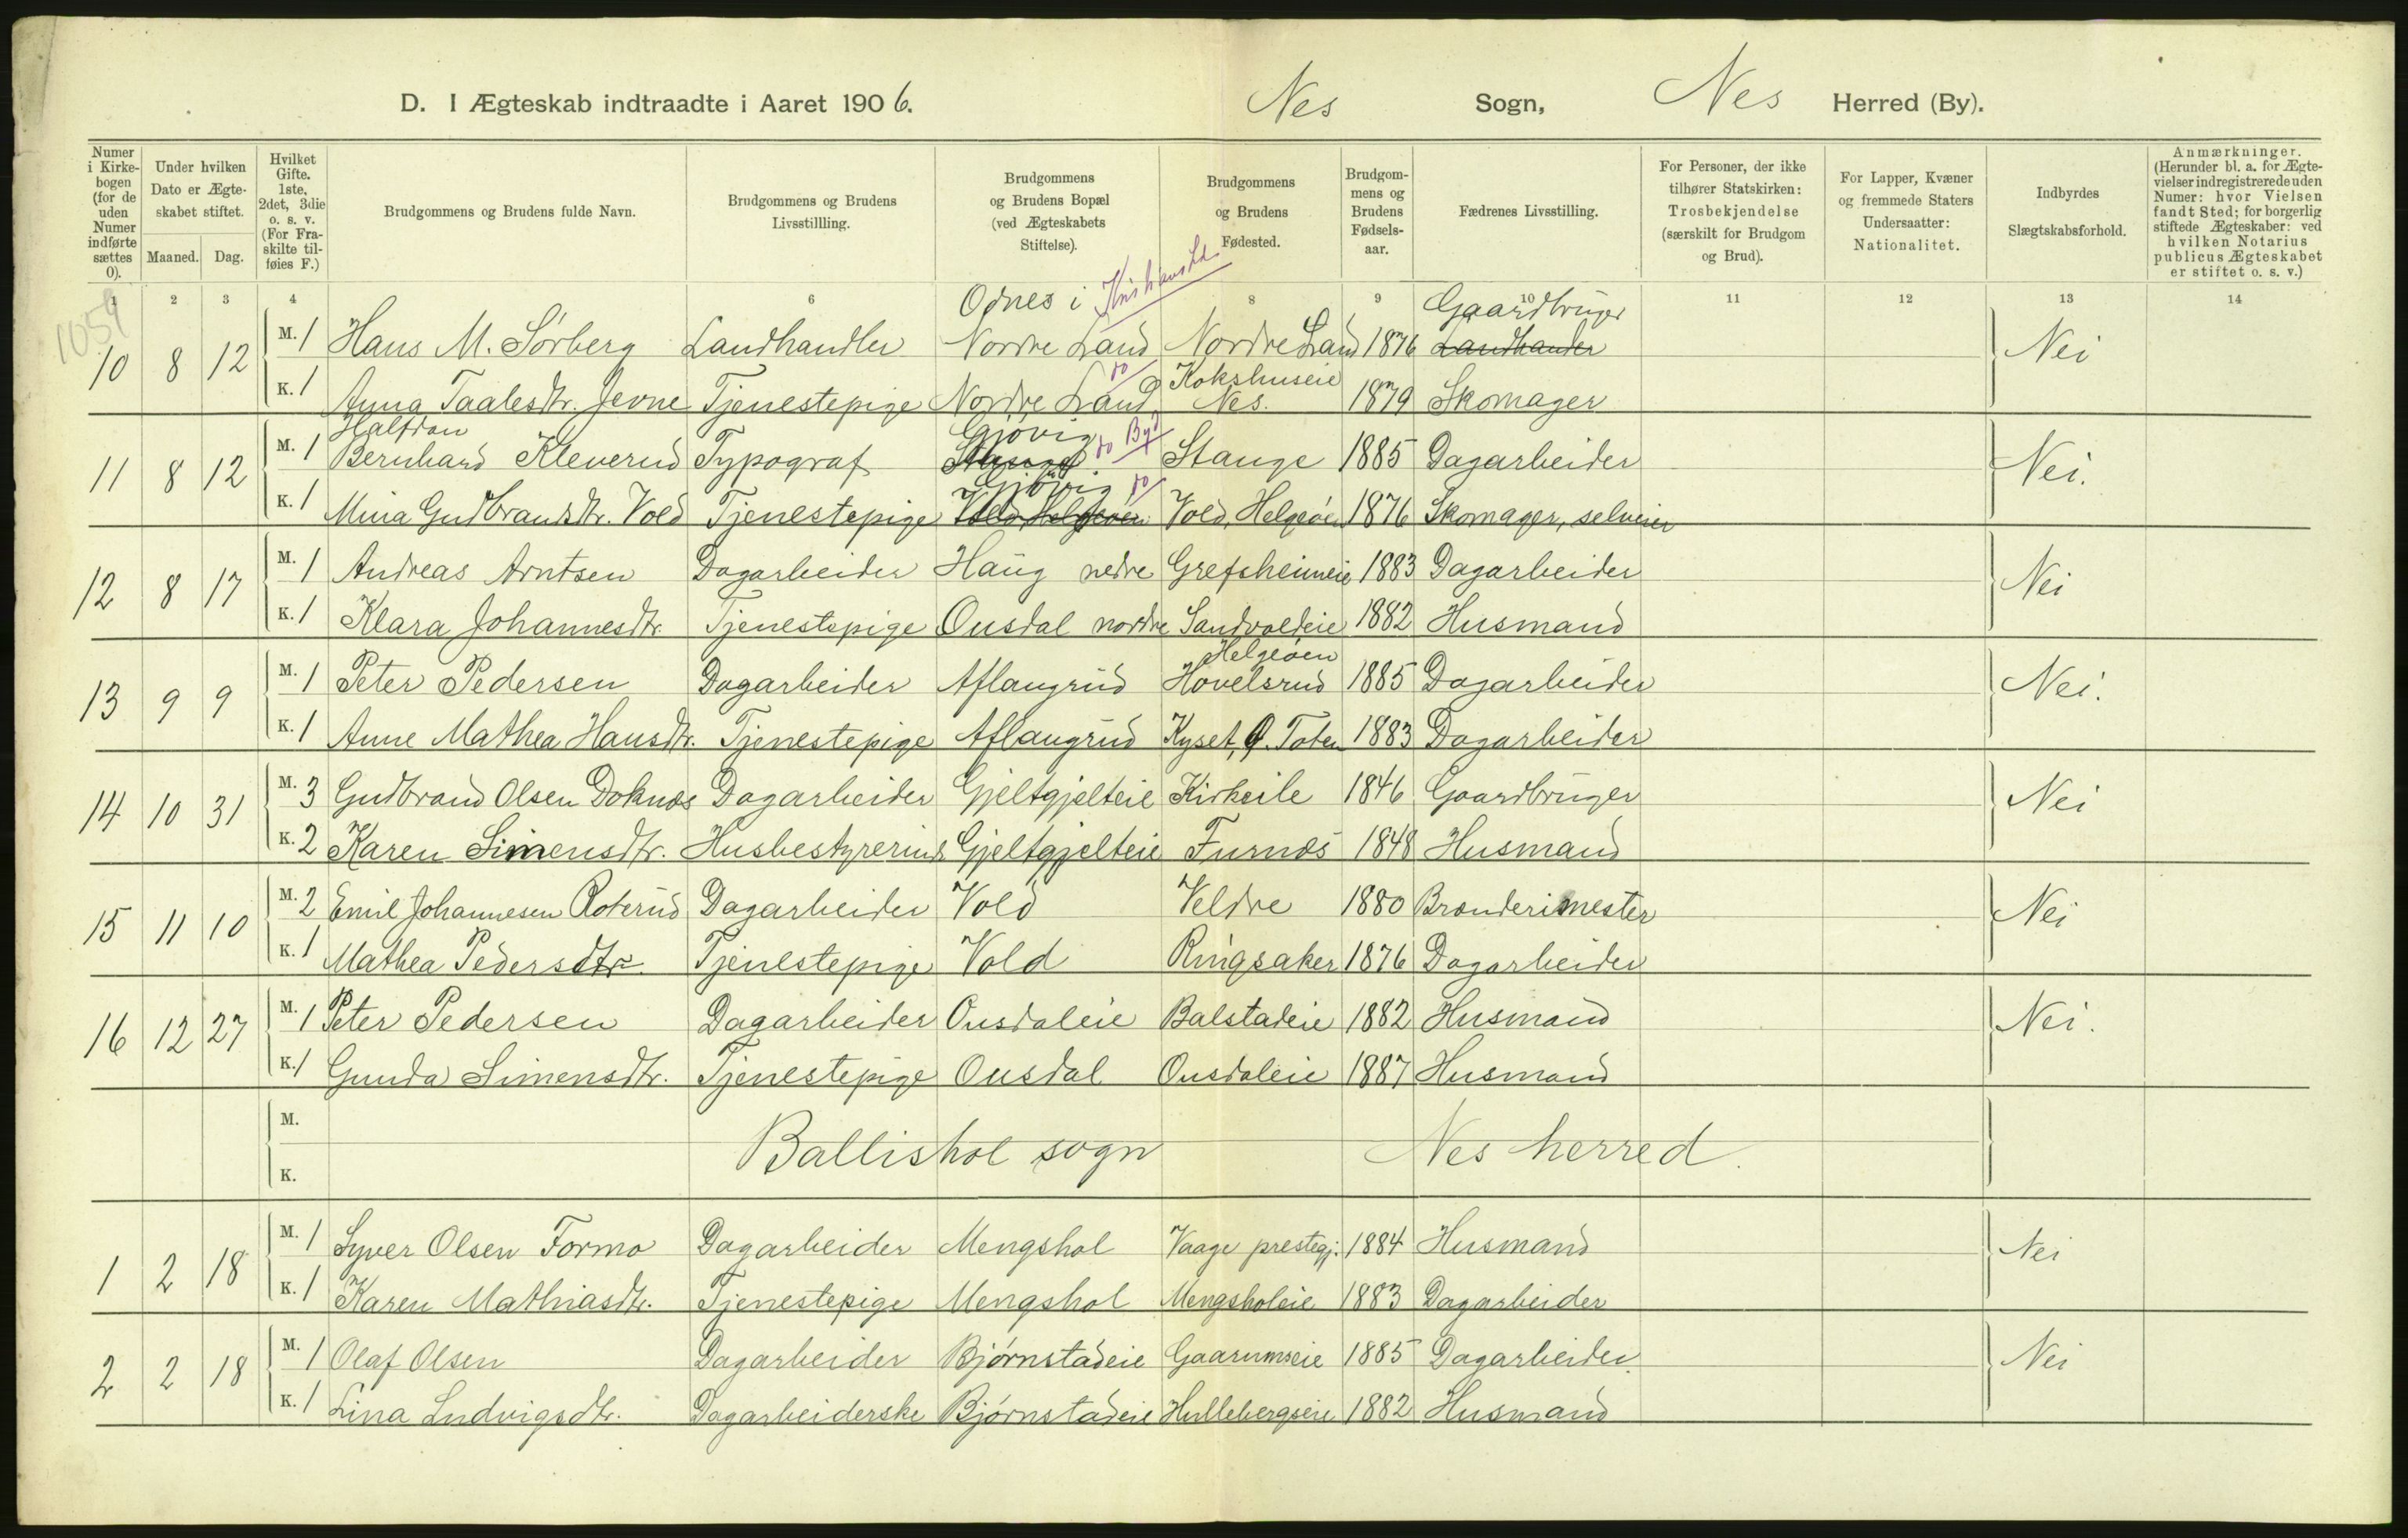 D. I Ægteskab indtraadte i Aaret 1906. Nes Sogn, Nes Herred (By).
Numer i Kirkebogen (for de uden Numer indførte sættes 0).
Under hvilken Dato er Ægteskabet stiftet.
Maaned. Dag.
Hvilket Gifte. 1ste, 2det, 3die o. s. v. (For Fraskilte tilføies F.)
Brudgommens og Brudens fulde Navn.
Brudgommens og Brudens Livsstillling.
Brudgommens og Brudens Bopæl (ved Ægteskabets Stiftelse).
Brudgommens og Brudens Fødested.
Brudgommens og Brudens Fødselsaar.
Fædrenes Livsstilling.
For Personer, der ikke tilhører Statskirken: Trosbekjendelse (særskilt for Brudgom og Brud).
For Lapper, Kvæner og fremmede Staters Undersaatter: Nationalitet.
Indbyrdes Slægtskabsforhold.
Anmærkninger. (Herunder bl. a. for Ægtevielser indregistrerede uden Numer: hvor Vielsen fandt Sted; for borgerlig stiftede Ægteskaber: ved hvilken Notarius publicus Ægteskabet er stiftet o. s. v.)
1 2 3 4 6 8 9 10 11 12 13 14
1059
10 8 12 M. 1 Hans M. Sørberg Landhandler Odnes i Nordre Land Nordre Land 1876 Gaardbruger Landhander Nei
K. 1 Anna Taalesdtr. Jevne Tjenestepige Nordre Land do Kokshuseie Nes. 1879 Skomager
11 8 12 M. 1 Halfdan Bernhard Kleverud Typograf Gjøvig Stange do By Stange 1885 Dagarbeider Nei.
K. 1 Mina Gudbrandsdtr. Vold Tjenestepige Gjøvig Vold, Helgeøen do Vold, Helgeøen 1876 Skomager, selveier
12 8 17 M. 1 Andreas Arntsen Dagarbeider Haug nedre Grefsheimeie 1883 Dagarbeider Nei
K. 1 Klara Johannesdtr. Tjenestepige Ousdal nordre Sandvoldeie 1882 Husmand
13 9 9 M. 1 Peter Pedersen Dagarbeider Aflangrud Helgeøen Hovelsrud 1885 Dagarbeider Nei.
K. 1 Anne Mathea Hansdtr. Tjenestepige Aflangrud Kyset, Ø. Toten 1883 Dagarbeider
14 10 31 M. 3 Gudbrand Olsen Doknæs Dagarbeider Gjeltgjelteie Kirkeile 1846 Gaardbruger Nei
K. 2 Karen Simensdtr. Husbestyrerinde Gjeltgjelteie Furnæs 1848 Husmand
15 11 10 M. 2 Emil Johannesen Roterud Dagarbeider Vold Veldre 1880 Brænderimester Nei
K. 1 Mathea Pedersdtr. Tjenestepige Vold Ringsaker 1876 Dagarbeider
16 12 27 M. 1 Peter Pedersen Dagarbeider Ousdaleie Balstadeie 1882 Husmand Nei.
K. 1 Gunda Simensdtr. Tjenestepige Ousdal Ousdaleie 1887 Husmand
M.
Ballishol sogn Nes herred.
K.
1 2 18 M. 1 Syver Olsen Formo Dagarbeider Mengshol Vaage prestegj. 1884 Husmand Nei
K. 1 Karen Mathiasdtr. Tjenestepige Mengshol Mengsholeie 1883 Dagarbeider
2 2 18 M. 1 Olaf Olsen Dagarbeider Bjørnstadeie Gaarumseie 1885 Dagarbeider Nei
K. 1 Lina Ludvigsdtr. Dagarbeiderske Bjørnstadeie Hullebergseie 1882 Husmand